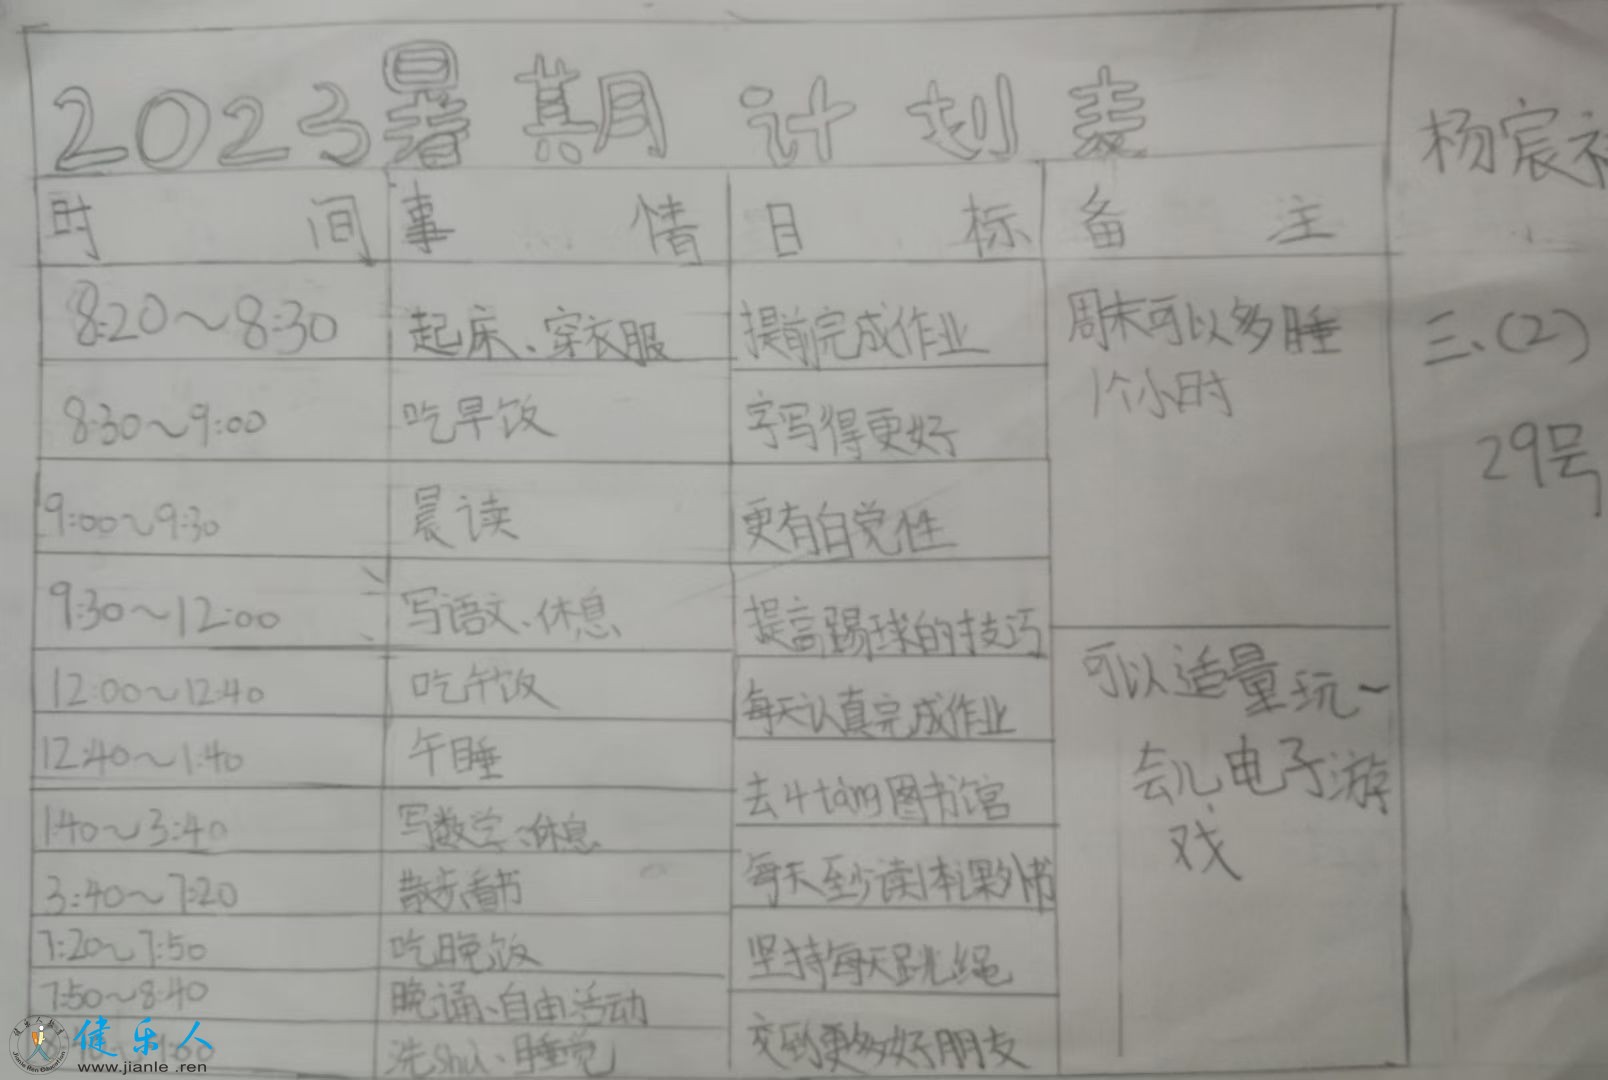 2023暑期计划表
时间 事情 目标 备注
8:20～8:30 起床、穿衣服 提前完成作业 周末可以多睡
1个小时
8:30～9:00 吃早饭 字写得更好
9:00～9:30 晨读 更有自觉性
9:30～12:00 写语文、休息 提高踢球的技巧
12:00～12:40 吃午饭 每天认真完成作业
12:40～1:40 午睡 去4tang图书馆
1:40～3:40 写数学、休息 每天至少读1本课外书
3:40～7:20 散步、看书
7:20～7:50 吃晚饭 坚持每天跳绳
7:50～8:40 晚诵、自由活动 交到更多好朋友
洗shu、睡觉
可以适量玩一
会儿电子游
戏
杨宸
三、(2)
29号
健乐人
www.jianle.ren